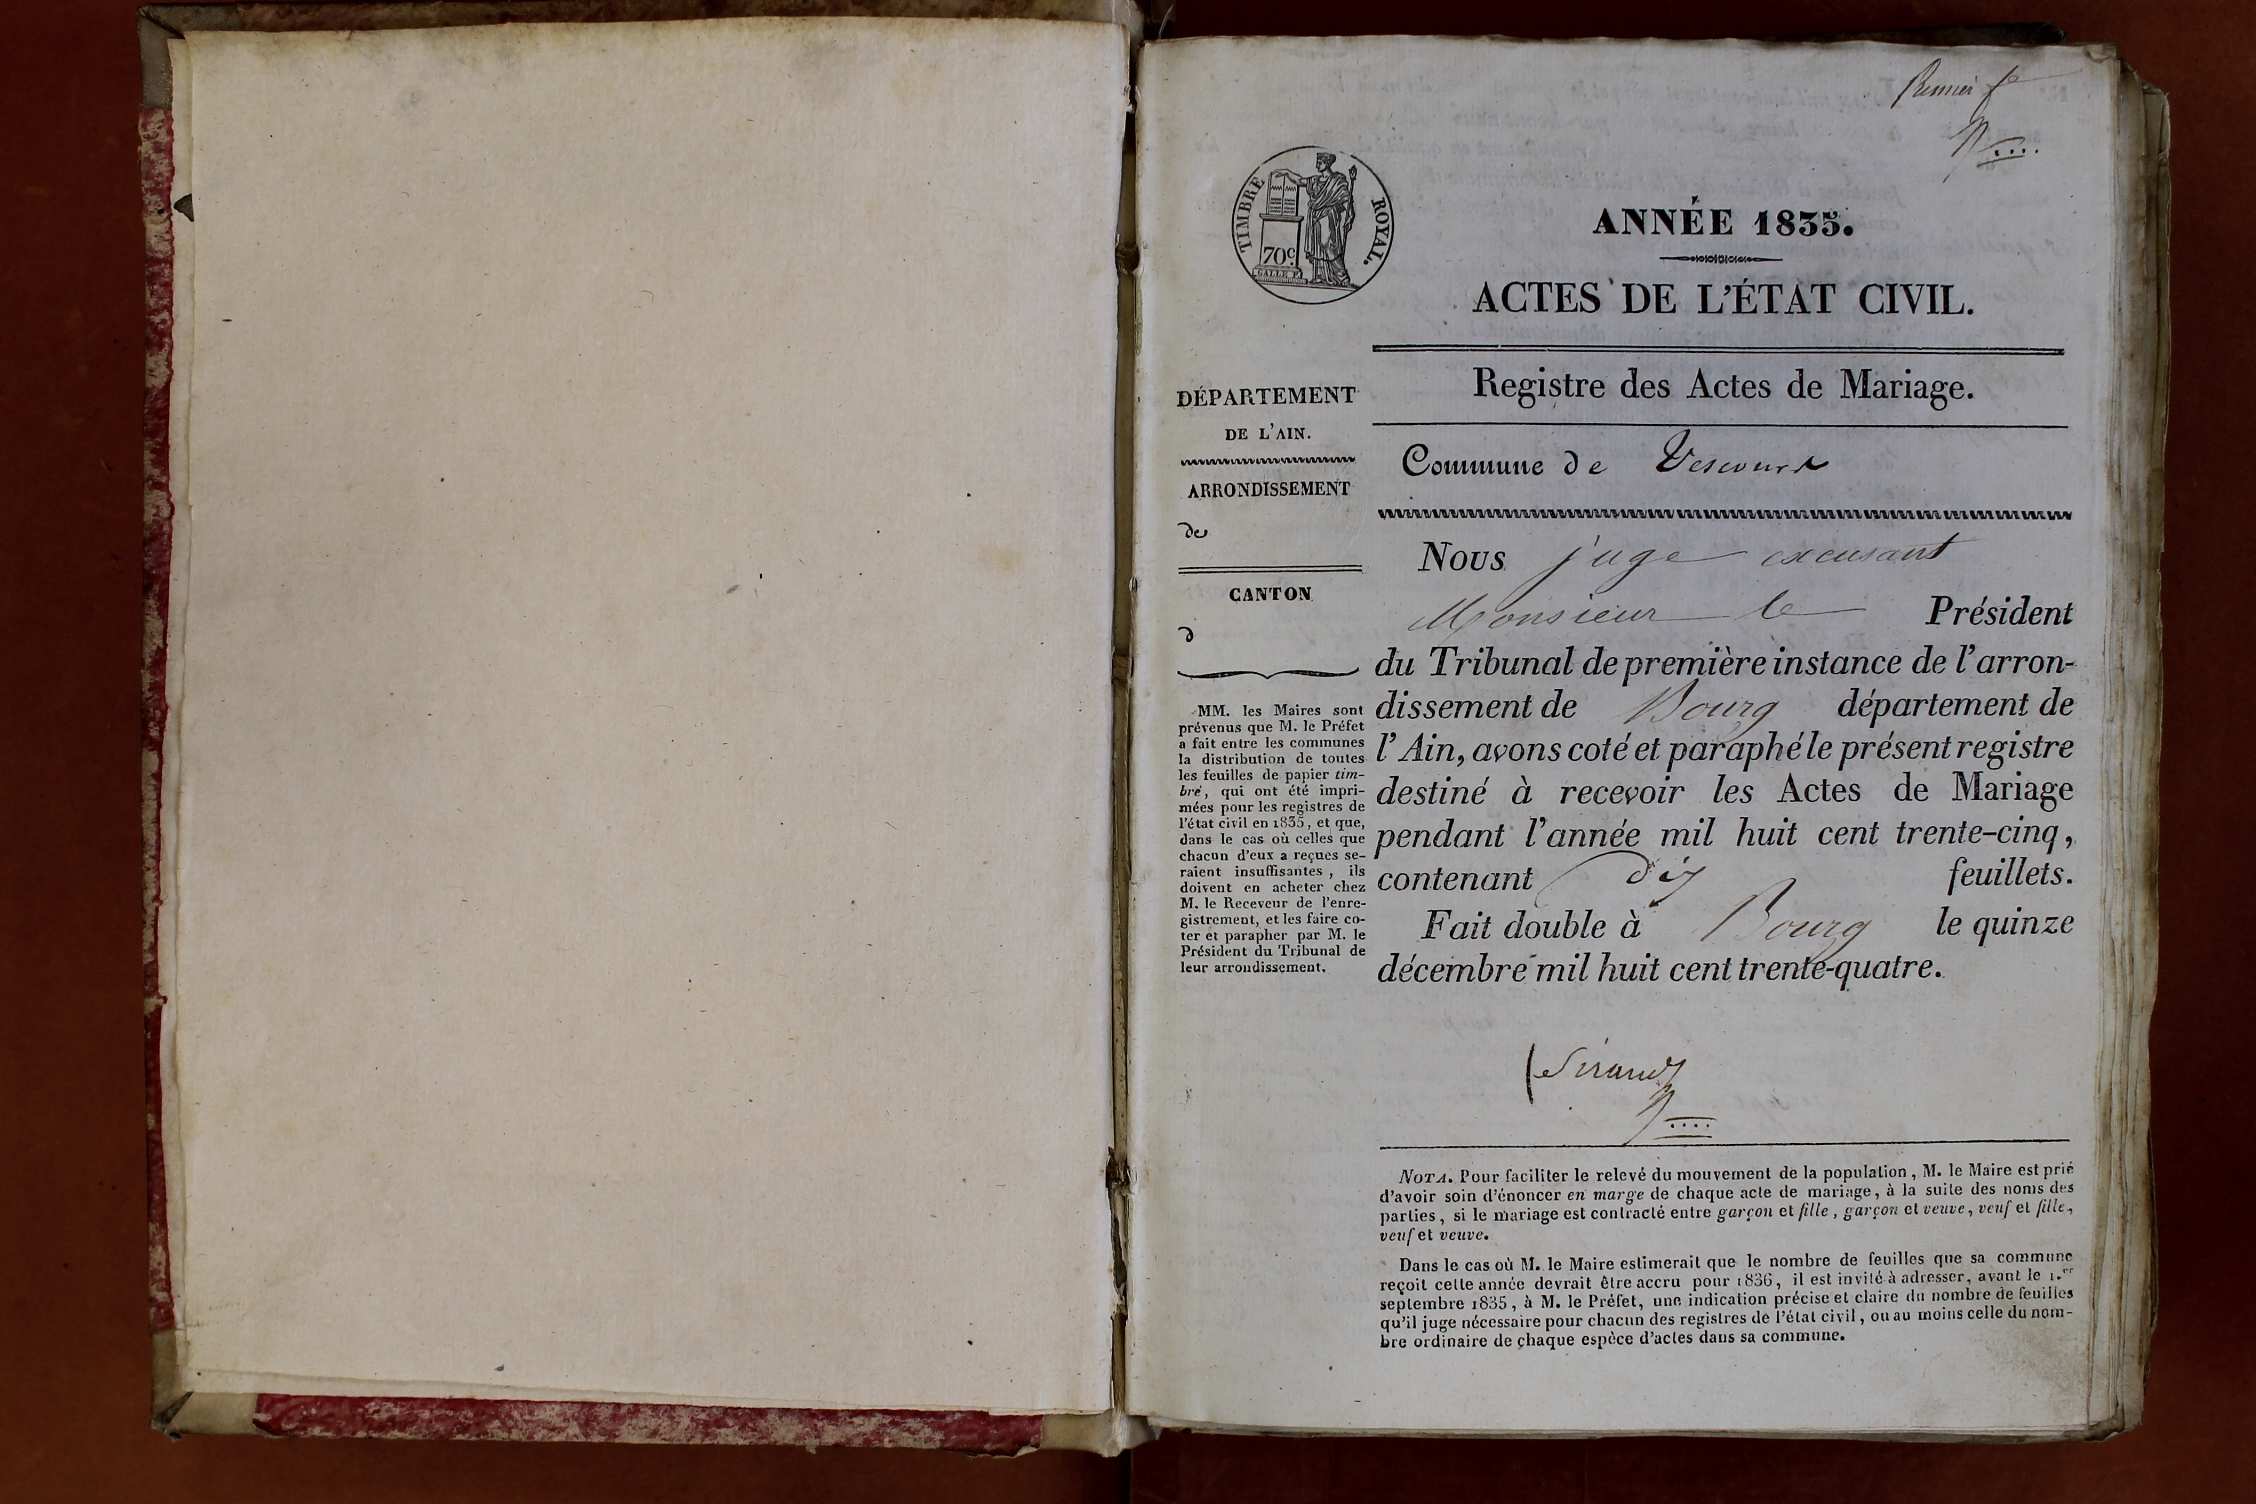 Premier f.e
TIMBRE ROYAL.
70 c.
GALLE F.
ANNÉE 1835.
ACTES DE L'ÉTAT CIVIL.
Registre des Actes de Mariage.
Commune de Vescours
DÉPARTEMENT
DE L'AIN.
ARRONDISSEMENT
de
CANTON
d
MM. les Maires sont
prévenus que M. le Préfet
a fait entre les communes
la distribution de toutes
les feuilles de papier tim-
bré, qui ont été impri-
mées pour les registres de
l'état civil en 1835, et que,
dans le cas où celles que
chacun d'eux a reçues se-
raient insuffisantes, ils
doivent en acheter chez
M. le Receveur de l'enre-
gistrement, et les faire co-
ter et parapher par M. le
Président du Tribunal de
leur arrondissement.
Nous juge excusant
Monsieur le Président
du Tribunal de première instance de l'arron-
dissement de Bourg département de
l'Ain, avons coté et paraphé le présent registre
destiné à recevoir les Actes de Mariage
pendant l'année mil huit cent trente-cinq,
contenant dix feuillets.
Fait double à Bourg le quinze
décembre mil huit cent trente-quatre.
NOTA. Pour faciliter le relevé du mouvement de la population, M. le Maire est prié
d'avoir soin d'énoncer en marge de chaque acte de mariage, à la suite des noms des
parties, si le mariage est contracté entre garçon et fille, garçon et veuve, veuf et fille,
veuf et veuve.
Dans le cas où M. le Maire estimerait que le nombre de feuilles que sa commune
reçoit cette année devrait être accru pour 1836, il est invité à adresser, avant le 1.er
septembre 1835, à M. le Préfet, une indication précise et claire du nombre de feuilles
qu'il juge nécessaire pour chacun des registres de l'état civil, ou au moins celle du nom-
bre ordinaire de chaque espèce d'actes dans sa commune.